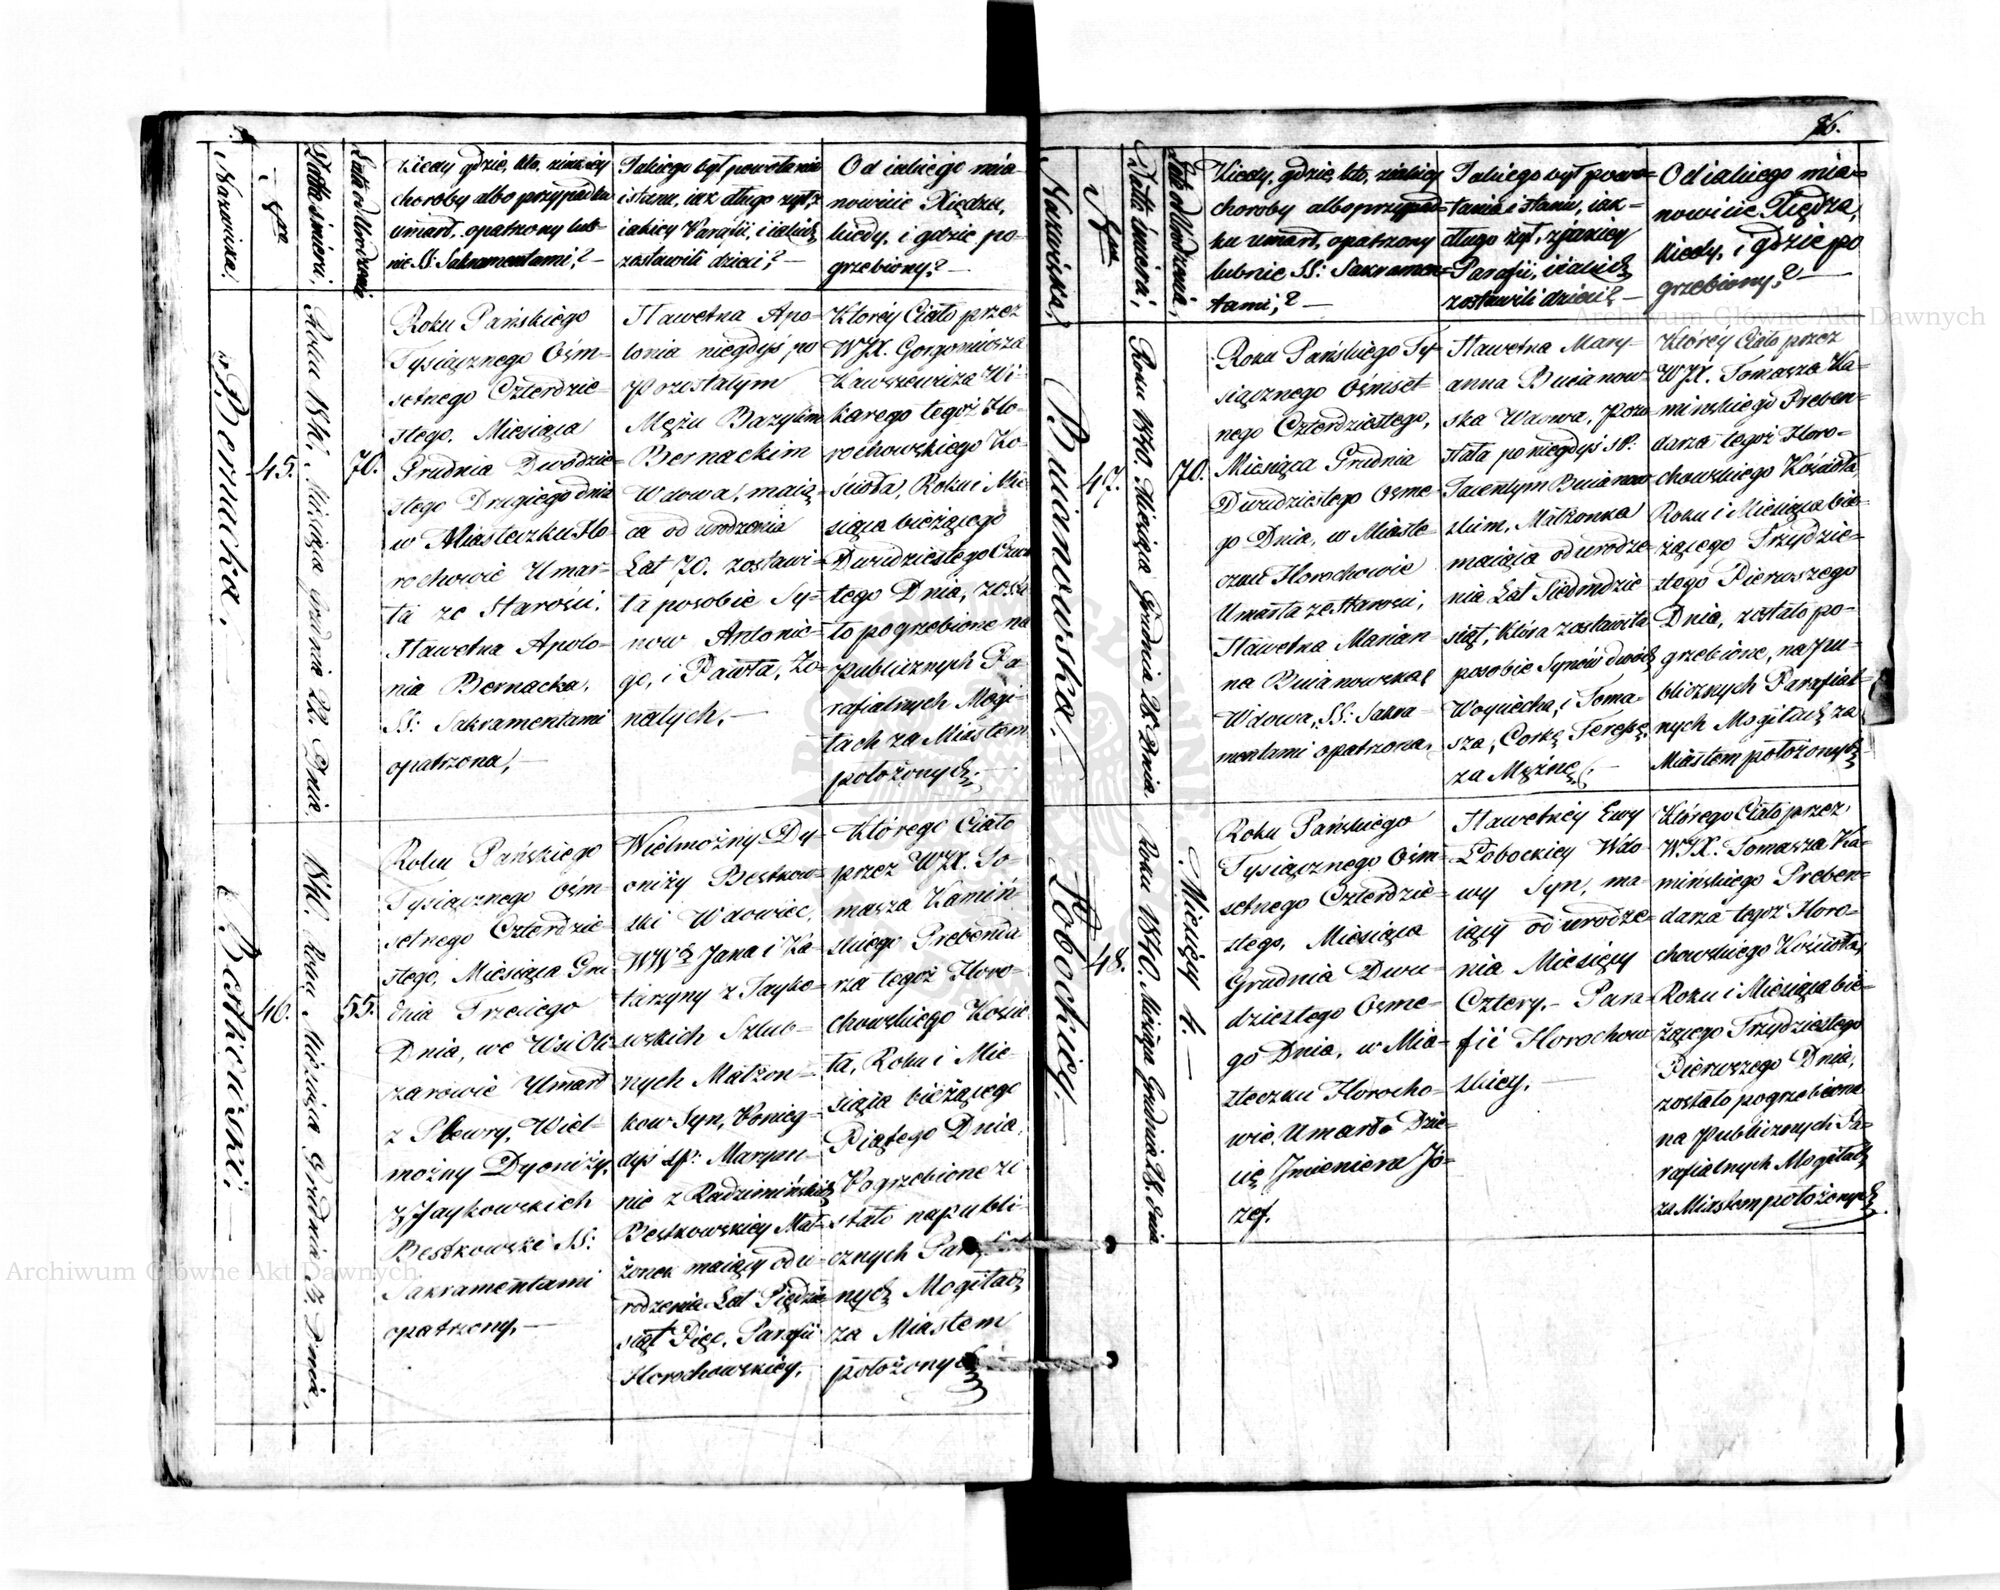 86.
Nazwiska,
Nro
Datta śmierci,
Lata od Urodzenia
Kiedy gdzie, kto, na iakiey
choroby albo przypadku
umarł, opatrzony lub
nie SS: Sakramentami?—
Jakiego był powołania
i stanu, iak długo żył, z
iakiey Parafii, i iakich
zostawili dzieci?—
Od iakiego mia-
nowicie Xiędza,
kiedy, i gdzie po-
grzebiony?—
Bernacka.
45.
Roku 1840, Miesiąca Grudnia 22. Dnia.
70.
Roku Pańskiego
Tysiącznego Ośm-
setnego Czterdzie-
stego, Miesiąca
Grudnia Dwódzie-
stego Drugiego dnia
w Miasteczku Ho-
rochowie Umar-
ła ze Starości,
Sławetna Apolo-
nia Bernacka,
SS: Sakramentami
opatrzona,—
Sławetna Apo-
lonia niegdyś po
Pozostałym
Mężu Bazylim
Bernackim
Wdowa, maią-
ca od urodzenia
Lat 70. zostawi-
ła posobie Sy-
now Antonie-
go, i Pawła, Żo-
natych.—
Ktorey Ciało przez
WJX. Gorgoniusza
Kawszewicza Wi-
karego tegoż Ho-
rochowskiego Ko-
ścioła, Roku i Mie-
siąca bieżącego
Dwudziestego Czwar
tego Dnia, zosta
ło pogrzebione na
publicznych Pa-
rafialnych Mogi-
łach za Miastem
położonych.—
Bestkowski.—
46.
1840. Roku Miesiąca Grudnia 3. Dnia.
55.
Roku Pańskiego
Tysiącznego Ośm-
setnego Czterdzie-
stego, Miesiąca Gru
dnia Trzeciego
Dnia, we Wsi Oli-
zarowie Umarł
z Plewry, Wiel-
możny Dyoniży
z Jaykowskich
Bestkowski SS:
Sakramentami
opatrzony,—
Wielmożny Dy-
oniży Bestkow-
ski Wdowiec,
WWch Jana i Ka-
tarzyny z Jayko-
wskich Szlub-
nych Małżon-
kow Syn, Poniég-
dyś śp: Maryan-
nie z Radzimińskich
Bestkowskiey Mał-
żonek maiący od u-
rodzenia Lat Pięćdzie
siąt Pięc, Parafii
Horochowskiey,
Którego Ciało
przez WJX. To-
masza Kamiń-
skiego Prebenda
rza tegoż Horo-
chowskiego Kościo
ła, Roku i Mie-
siąca bieżącego
Piątego Dnia,
Pogrzebione zo
stało na publi-
cznych Parafial
nych Mogiłach
za Miastem
położonych
Nazwiska,
Nro
Datta śmierci,
Lata od Urodzenia,
Kiedy, gdzie, kto, na iakiey
choroby albo przypad-
ku umarł, opatrzony
lub nie SS: Sakramen-
tami,?—
Jakiego był powo-
łania i stanu, iak-
długo żył, z iakiey
Parafii, i iakich
zostawili dzieci?—
Od iakiego mia-
nowicie Xiędza,
kiedy, i gdzie po
grzebiony?—
Bucianowska.
47.
Roku 1840. Miesiąca Grudnia 28. Dnia.
70.
Roku Pańskiego Ty-
siącznego Ośmset-
nego Czterdziestego,
Miesiąca Grudnia
Dwudziestego Osme-
go Dnia, w Miaste-
czku Horochowie
Umarła ze Starości,
Sławetna Marian-
na Bucianowska
Wdowa, SS: Sakra-
mentami opatrzona,
Sławetna Mary-
anna Bucianow-
ska Wdowa, Pozo-
stała po niegdyś śp:
Walentym Bucianow-
skim, Małżonka
maiąca od urodze-
nia Lat Siedmdzie
siąt, która zostawiła
posobie Synów dwóch
Woyciecha, i Toma-
sza, Corkę Teresę
za Mężne.—
Którey Ciało przez
WJX. Tomasza Ka-
minskiego Preben-
darza tegoż Horo-
chowskiego Kościoła,
Roku i Miesiąca bie-
żącego Trzydzie-
stego Pierwszego
Dnia, zostało po-
grzebione, na Pu-
blicznych Parafial-
nych Mogiłach za
Miastem położonych
Łobockiey.
48.
Roku 1840. Miesiąca Grudnia 28. Dnia
Miesięcy 4.—
Roku Pańskiego
Tysiącznego Ośm-
setnego Czterdzie-
stego, Miesiąca
Grudnia Dwu-
dziestego Osme-
go Dnia, w Mia-
steczku Horocho-
wie, Umarło Dzie-
cię Jmieniem Jó-
zef.
Sławetney Ewy
Łobockiey Wdo-
wy Syn, ma-
iący od urodze-
nia Miesięcy
Cztery,— Para-
fii Horochow
skiey,—
Którego Ciało przez,
WJX. Tomasza Ka-
mińskiego Preben-
darza tegoż Horo-
chowskiego Kościoła,
Roku i Miesiąca bie-
żącego Trzydziestego
Pierwszego Dnia,
zostało pogrzebione
na Publicznych Pa-
rafialnych Mogiłach
za Miastem położonych
Archiwum Główne Akt Dawnych
Archiwum Główne Akt Dawnych